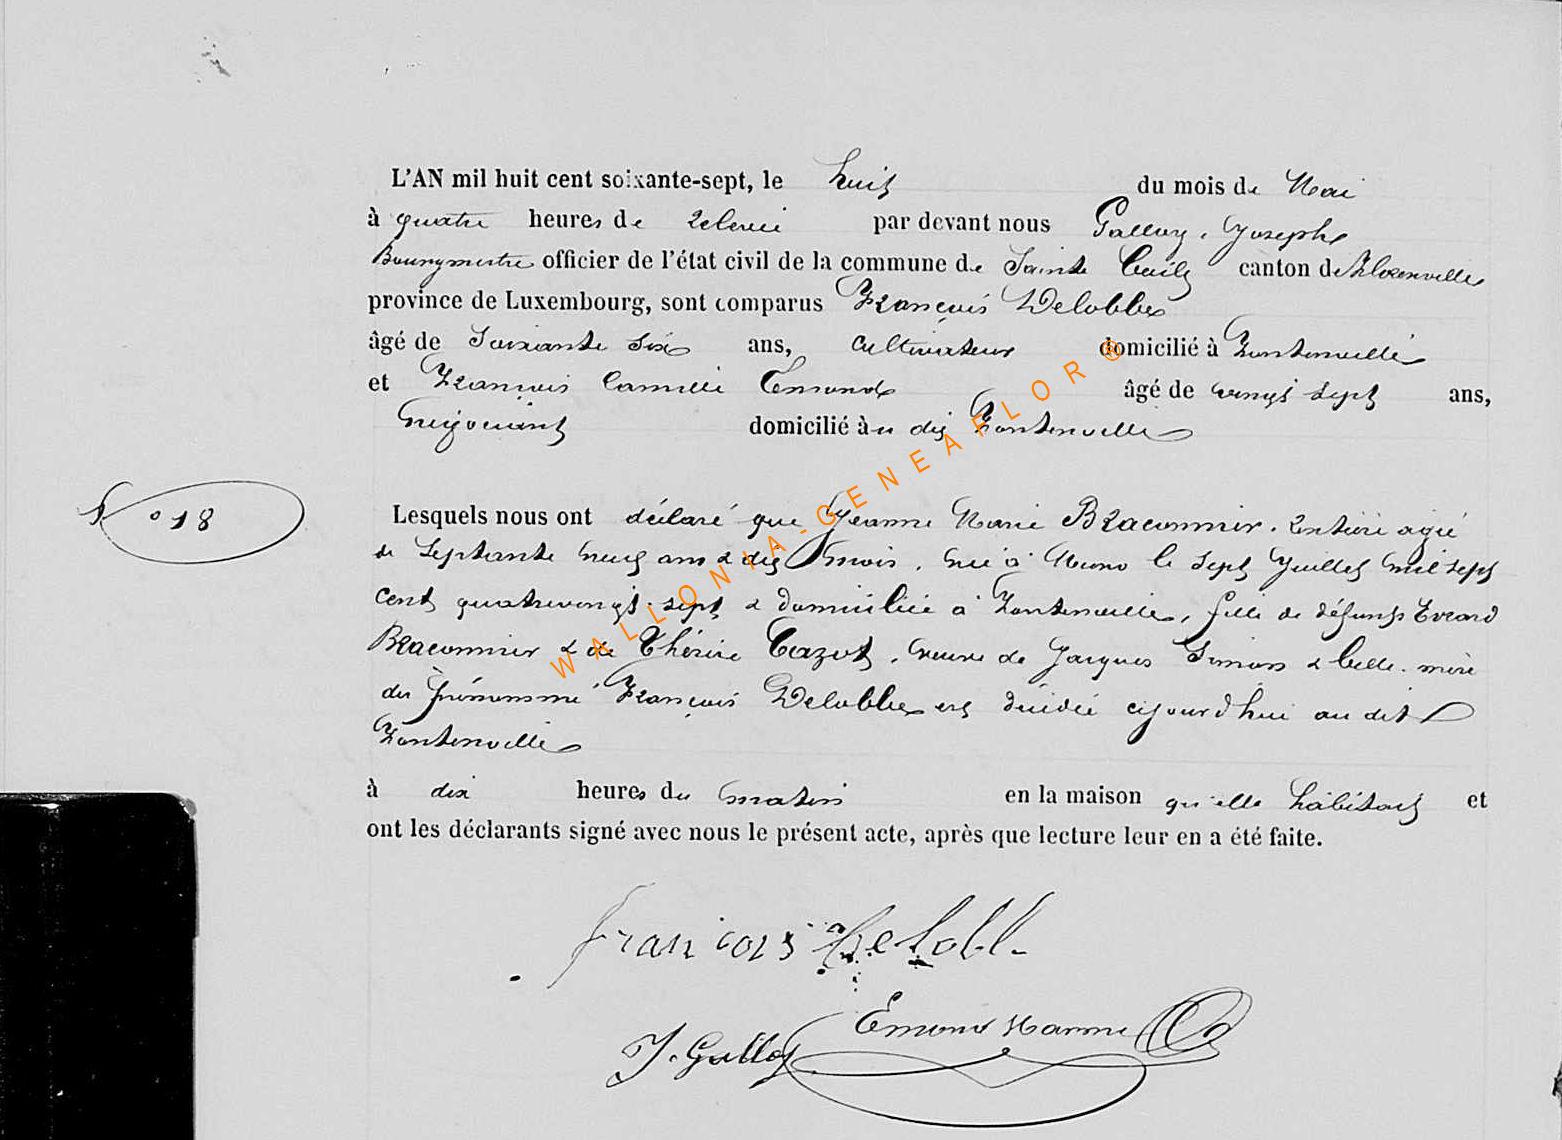 L'AN mil huit cent soixante-sept, le huit du mois de Mai
à quatre heures de relevée par devant nous Galloy, Joseph
Bourgmestre officier de l'état civil de la commune de Sainte Cécile canton de Florenville
province de Luxembourg, sont comparus François Delobbe
âgé de Soixante Six ans, cultivateur domicilié à Fontenoille
et François Camille Emond âgé de vingt sept ans,
Négociant domicilié à u dit Fontenoille
N° 18
Lesquels nous ont déclaré que Jeanne Marie Braconnier, rentière agée
de Septante neuf ans & dix mois, née à Muno le sept Juillet mil sept
cent quatrevingt sept & domiciliée à Fontenoille, fille de défunts Evrard
Braconnier & de Thérèse Cazot, veuve de Jacques Simon & belle-mère
du prénommé François Delobbe est décédée cejourd'hui au dit
Fontenoille
à dix heures du matin en la maison qu'elle habitait et
ont les déclarants signé avec nous le présent acte, après que lecture leur en a été faite.
François Delobbe
Emond
J. Galloy
WALLONIA-GENEAFLOR ®